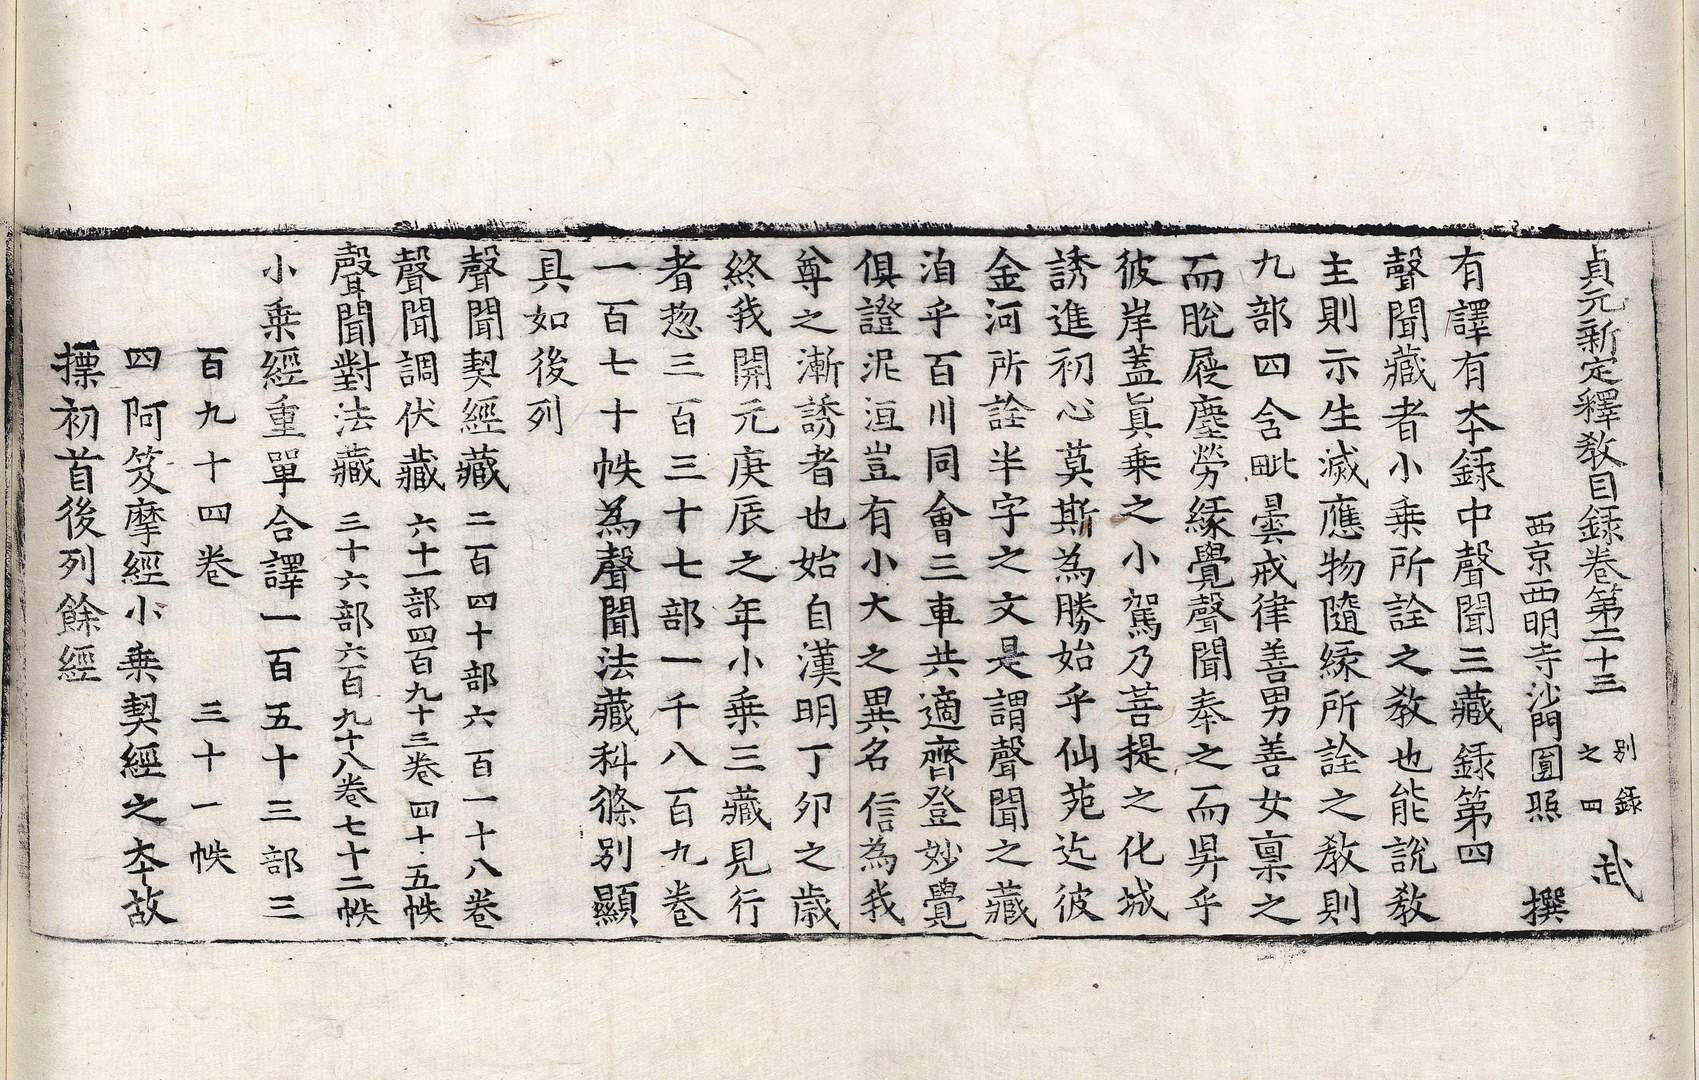 貞元新定釋教目録卷第二十三 別録之四 武
西京西明寺沙門圓照 撰
有譯有夲録中聲聞三藏録第四
聲聞藏者小乗所詮之教也能說教
主則示生滅應物隨縁所詮之教則
九部四含毗曇戒律善男善女稟之
而脫屣塵勞縁覺聲聞奉之而昇乎
彼岸蓋真乗之小駕乃菩提之化城
誘進初心莫斯為勝始乎仙苑迄彼
金河所詮半字之文是謂聲聞之藏
洎乎百川同會三車共適齊登妙覺
俱證泥洹豈有小大之異名信為我
尊之漸誘者也始自漢明丁夘之歳
終我開元庚辰之年小乗三藏見行
者惣三百三十七部一千八百九卷
一百七十帙為聲聞法藏科條別顯
具如後列
聲聞契經藏 二百四十部六百一十八卷
聲聞調伏藏 六十一部四百九十三卷四十五帙
聲聞對法藏 三十六部六百九十八卷七十二帙
小乗經重單合譯一百五十三部三
百九十四卷 三十一帙
四阿笈摩經小乗契經之夲故
摽初首後列餘經